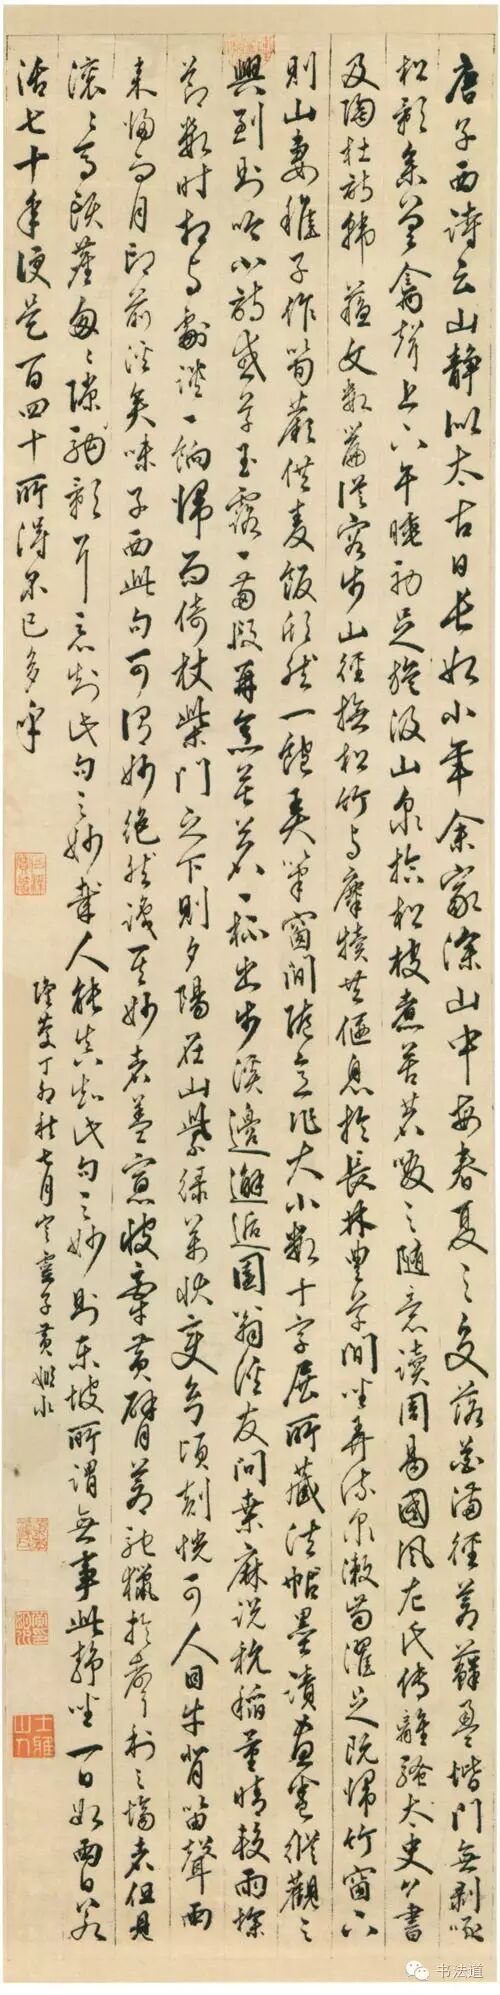 唐子西詩云山靜似太古日長如小年余家深山中每春夏之交落花滿徑蒼蘚盈堦門無剥啄
松影參差禽聲上下午睡初足旋汲山泉拾松枝煮苦茗啜之隨意讀周易國風左氏傳離騷太史公書
及陶杜詩韓蘇文數篇從容步山徑撫松竹與麛犢共偃息於長林豐草間坐弄流泉漱齒濯足既歸竹窗下
則山妻稚子作筍蕨供麦飯欣然一飽弄筆窗間隨意作大小數十字展所藏法帖墨蹟畫卷縱觀之
興到則吟小詩或草玉露一兩段再烹苦茗一杯出步溪邊邂逅園翁溪友問桑麻說秔稻量晴較雨探
節數時相與劇談一餉歸而倚杖柴門之下則夕陽在山紫綠萬狀變幻頃刻恍可人目牛背笛聲兩
來歸而月印前溪矣味子西此句可謂妙絕然識其妙者蓋寡彼牽黃臂蒼馳獵於聲利之場者但見
滾〻馬頭塵匆〻隙駒影耳烏知此句之妙哉人能真知此句之妙則東坡所謂無事此靜坐一日如兩日若
活七十年便是百四十所得不已多乎
隆慶丁卯秋七月虛子黃姬水
书法道